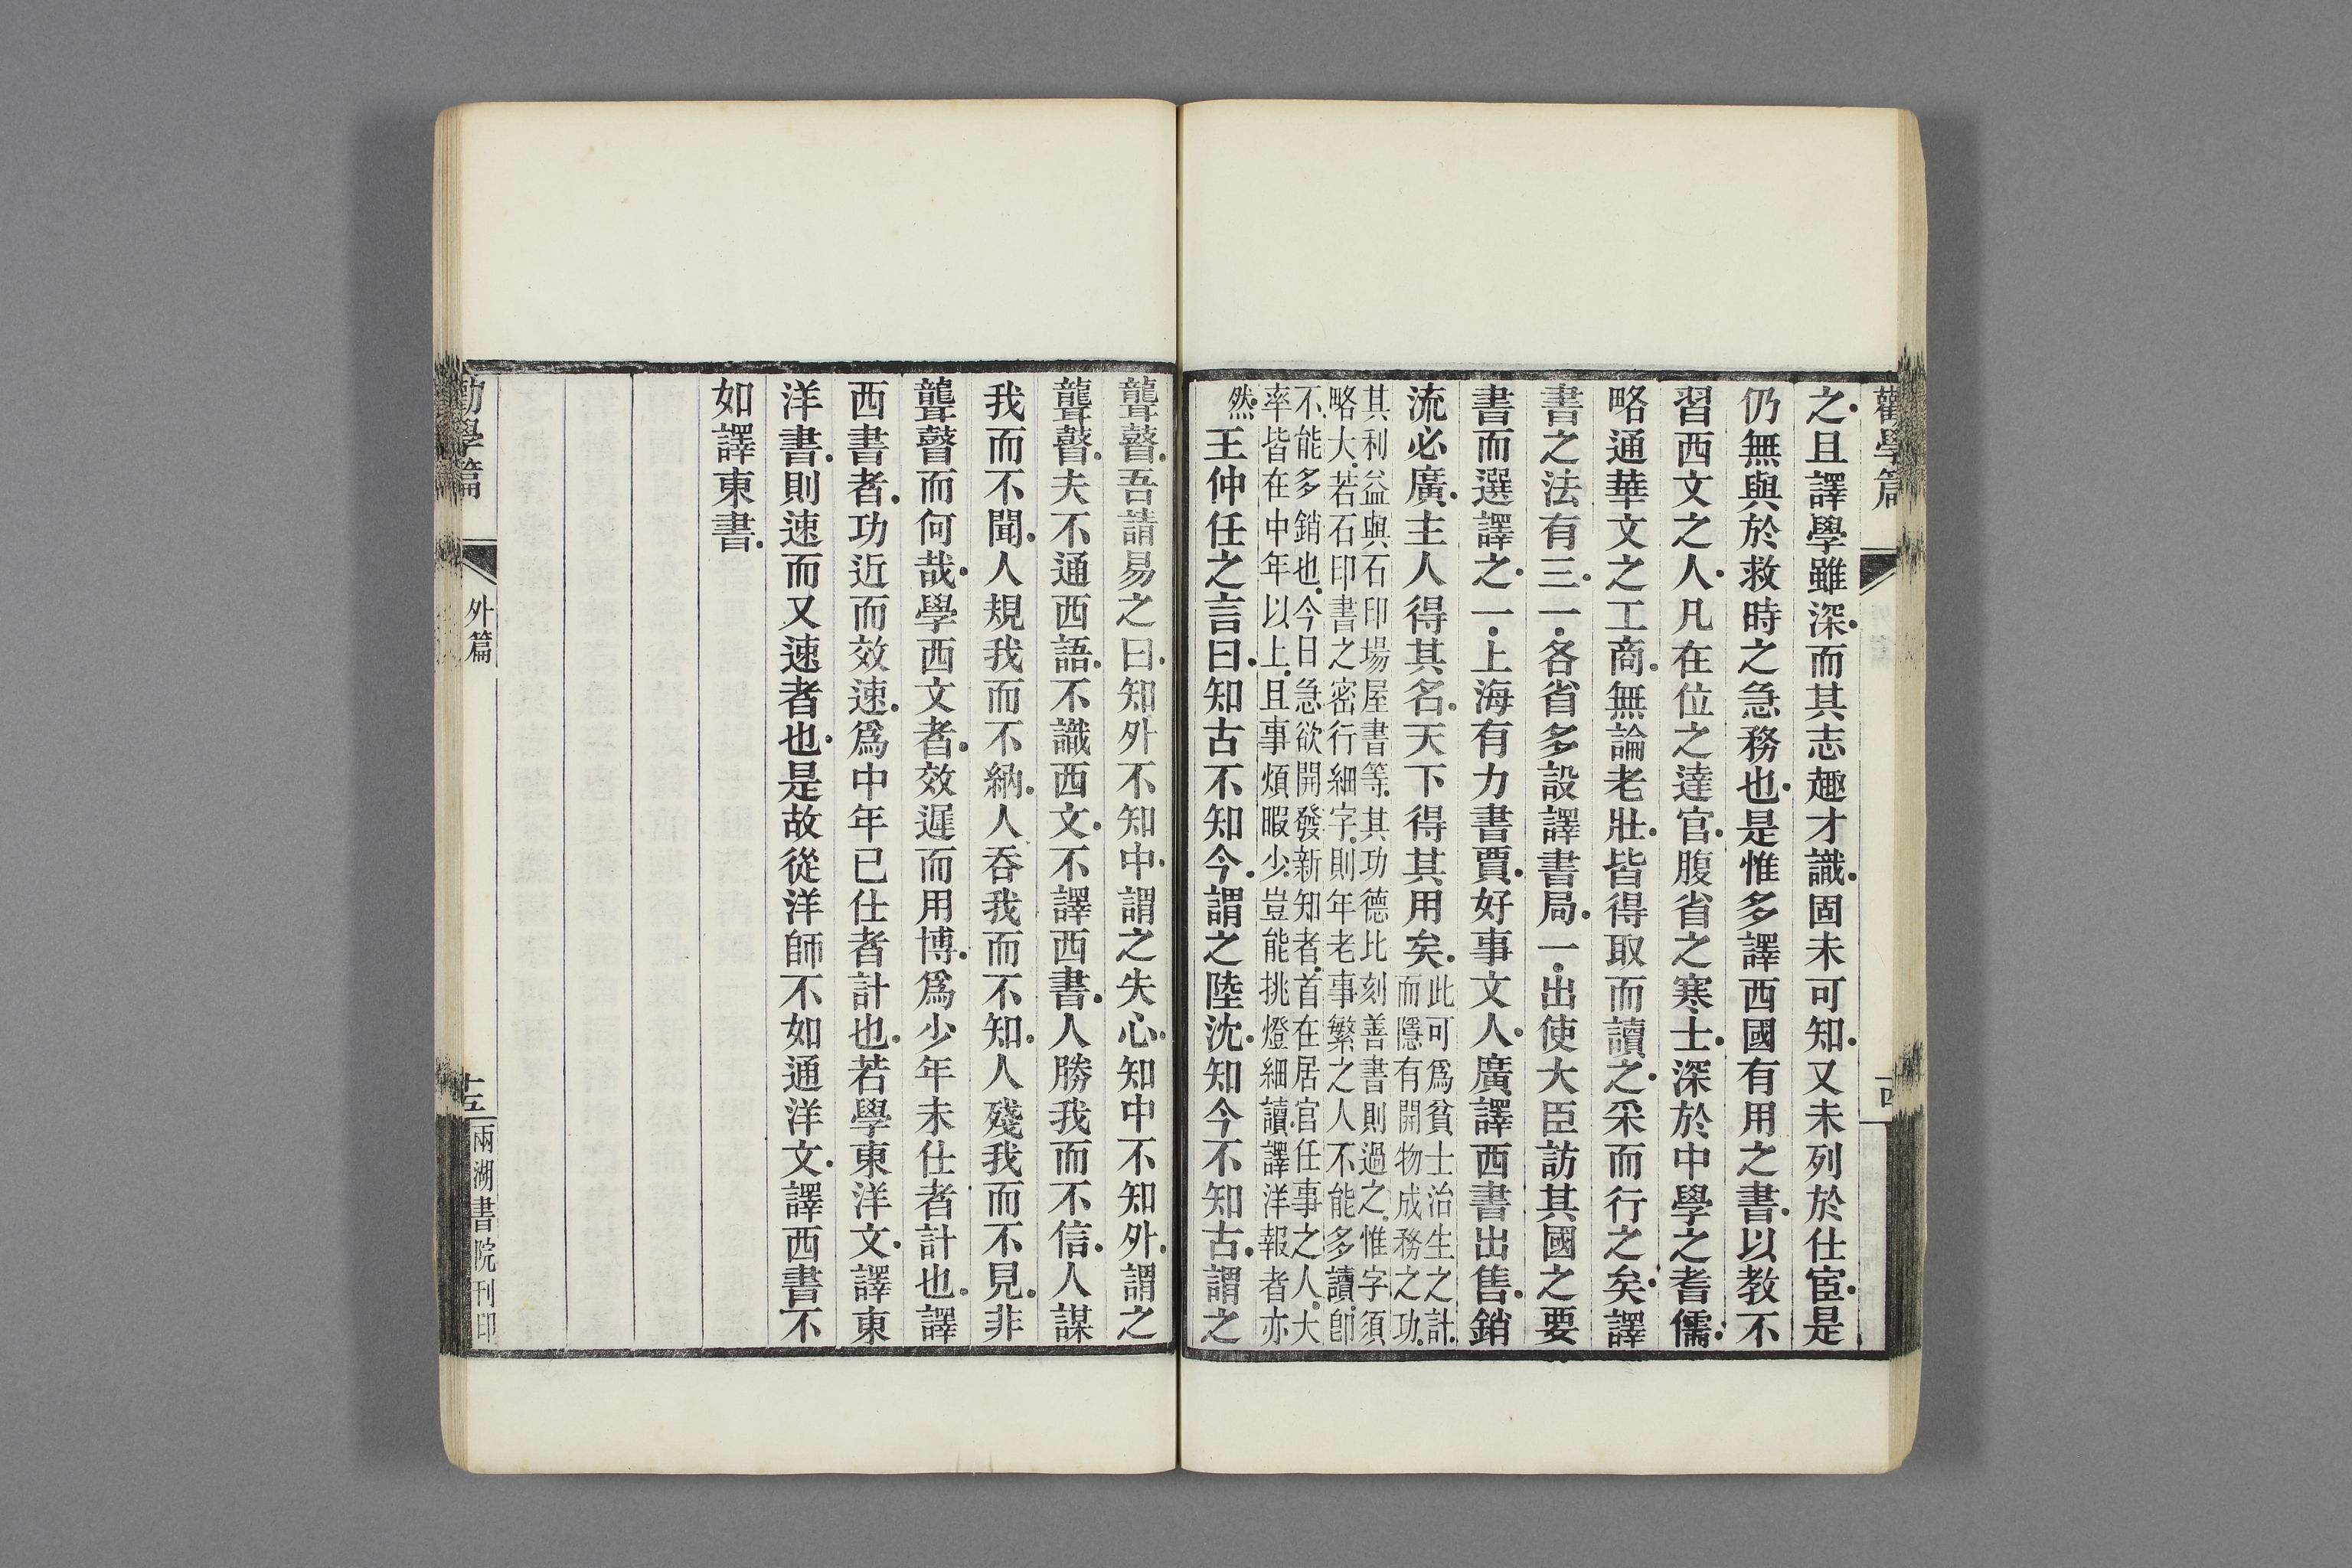 勸學篇
之且譯學雖深而其志趣才識固未可知又未列於仕宦是
仍無與於救時之急務也是惟多譯西國有用之書以教不
習西文之人凡在位之達官腹省之寒士深於中學之耆儒
略通華文之工商無論老壯皆得取而讀之采而行之矣譯
書之法有三一各省多設譯書局一出使大臣訪其國之要
書而選譯之一上海有力書賈好事文人廣譯西書出售銷
流必廣主人得其名天下得其用矣
此可爲貧士治生之計
而隱有開物成務之功
其利益與石印場屋書等其功德比刻善書則過之惟字須
略大若石印書之密行細字則年老事繁之人不能多讀卽
不能多銷也今日急欲開發新知者首在居官任事之人大
率皆在中年以上且事煩暇少豈能挑燈細讀譯洋報者亦
然
王仲任之言曰知古不知今謂之陸沈知今不知古謂之
聾瞽吾請易之曰知外不知中謂之失心知中不知外謂之
聾瞽夫不通西語不識西文不譯西書人勝我而不信人謀
我而不聞人規我而不納人吞我而不知人殘我而不見非
聾瞽而何哉學西文者效遲而用博爲少年未仕者計也譯
西書者功近而效速爲中年已仕者計也若學東洋文譯東
洋書則速而又速者也是故從洋師不如通洋文譯西書不
如譯東書
勸學篇
外篇
十五
兩湖書院刊印